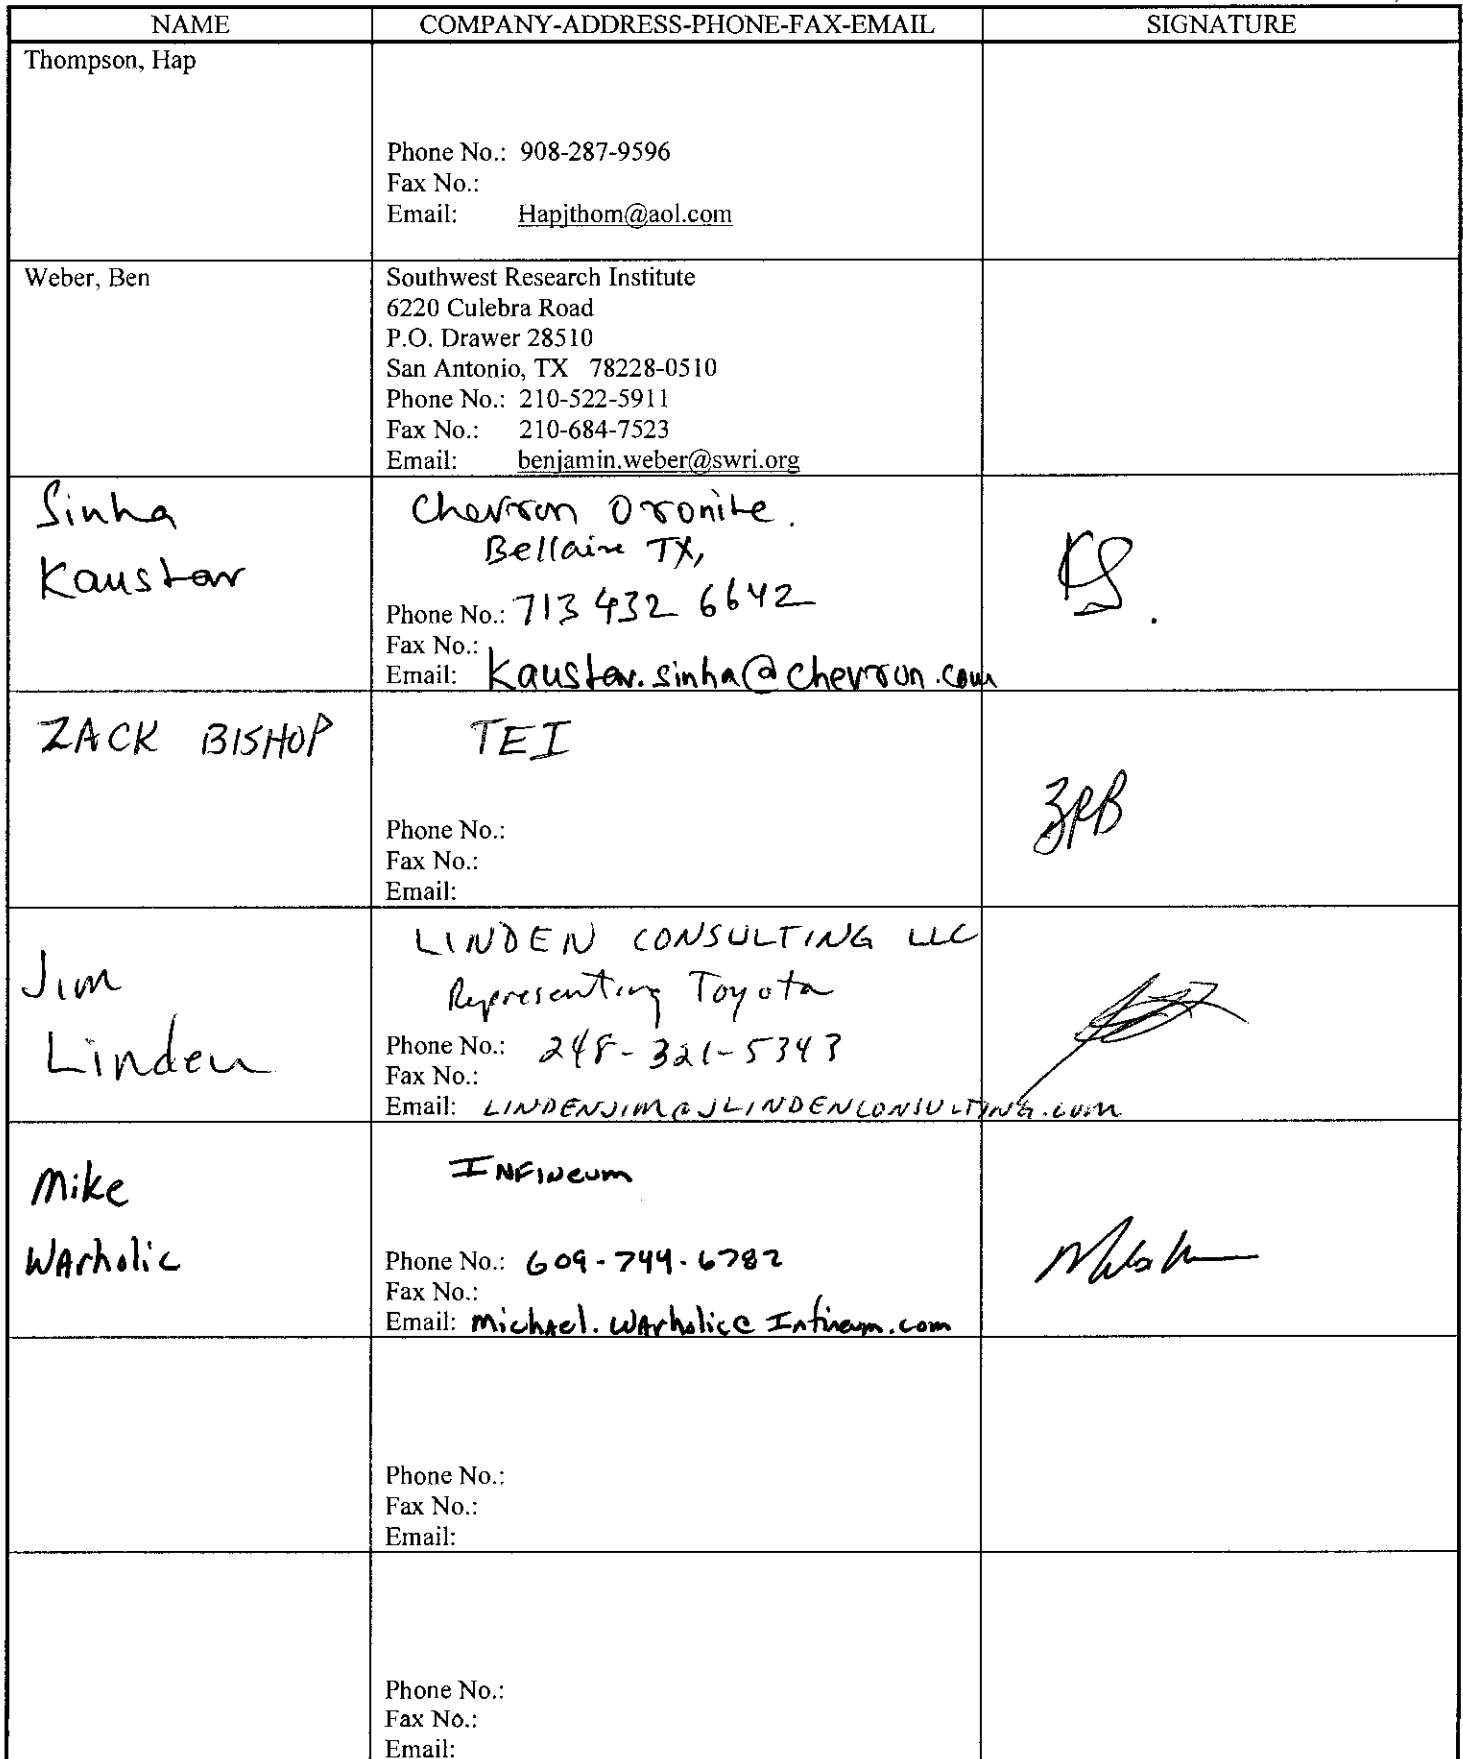 NAME COMPANY-ADDRESS-PHONE-FAX-EMAIL SIGNATURE
Thompson, Hap
Phone No.: 908-287-9596
Fax No.:
Email: Hapjthom@aol.com
Weber, Ben
Southwest Research Institute
6220 Culebra Road
P.O. Drawer 28510
San Antonio, TX 78228-0510
Phone No.: 210-522-5911
Fax No.: 210-684-7523
Email: benjamin.weber@swri.org
Sinha
Kaustav
Chevron Oronite.
Bellaire TX,
Phone No.: 713 432 6642
Fax No.:
Email: Kaustav.sinha@chevron.com
KS.
ZACK BISHOP
TEI
Phone No.:
Fax No.:
Email:
ZRB
Jim
Linden
LINDEN CONSULTING LLC
Representing Toyota
Phone No.: 248-321-5343
Fax No.:
Email: LINDENJIM@JLINDENCONSULTING.COM
Mike
WArholic
INFINeum
Phone No.: 609-744-6782
Fax No.:
Email: MichAel.WArholic@Infineum.com
Phone No.:
Fax No.:
Email:
Phone No.:
Fax No.:
Email: